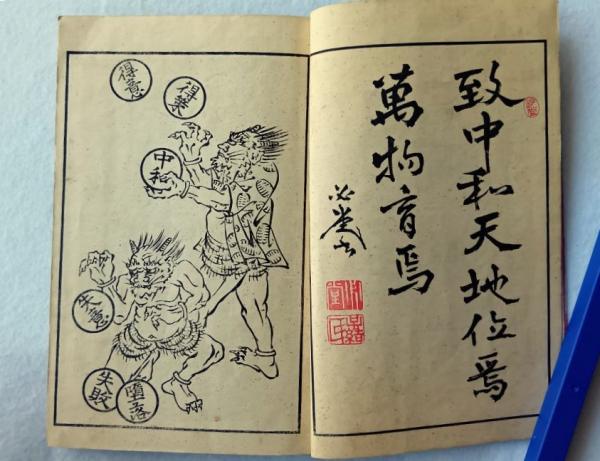 致中和天地位焉
萬物育焉
得意
得業
中和
失意
失敗
墮落